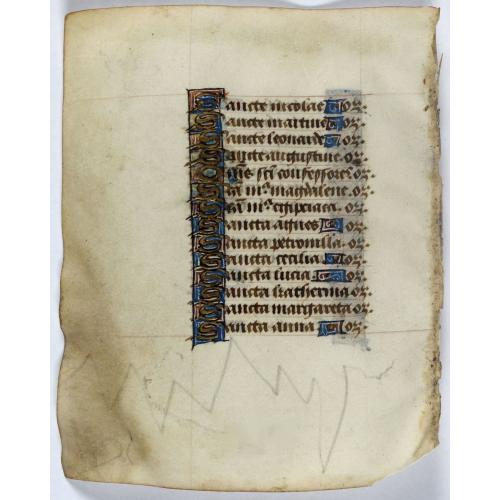 Sancte nicolae oꝝ.
Sancte martine oꝝ.
Sancte leonarde oꝝ.
Sancte augustine. oꝝ.
Om̅s sc̅i confessores oꝝ.
Sc̅a mᵃ. magdalene. oꝝ.
Sc̅a mᵃ. egipciaca. oꝝ.
Sancta agnes oꝝ.
Sancta petronilla. oꝝ.
Sancta cecilia oꝝ.
Sancta lucia. oꝝ.
Sancta katherina oꝝ.
Sancta margareta oꝝ.
Sancta anna oꝝ.